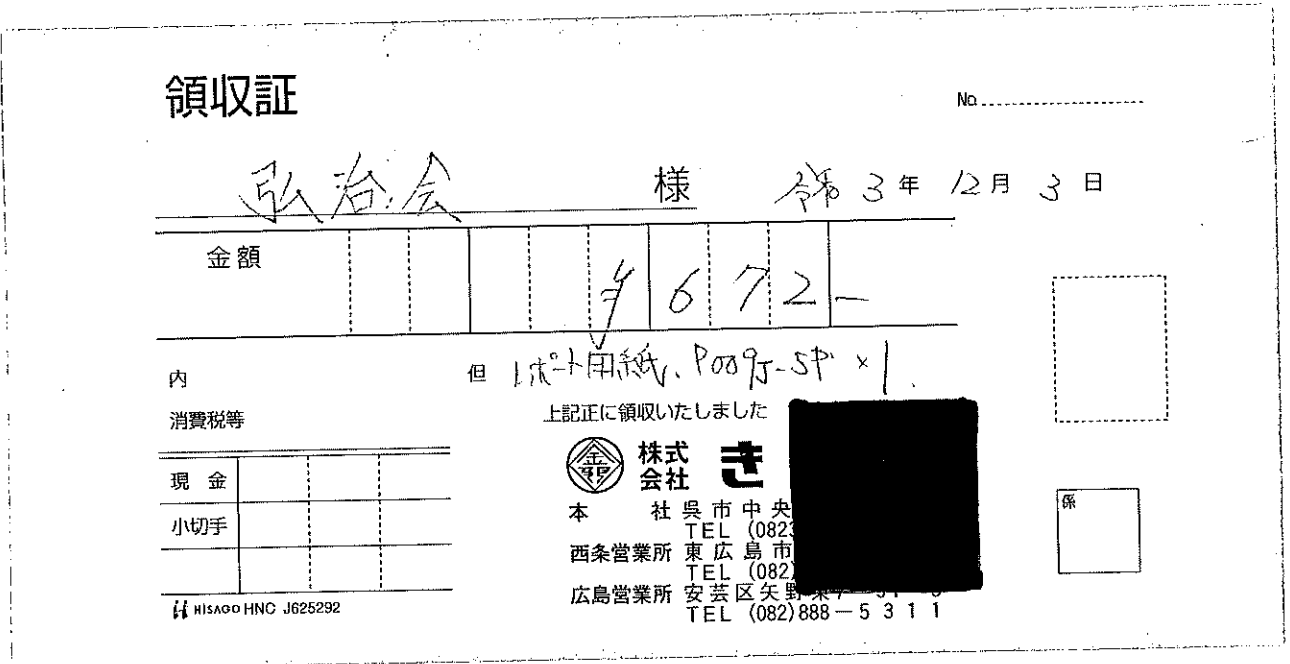 領収証
No.
弘治会 様 令和 3年 12月 3日
金額 ¥672-
内
但 レポート用紙、P009J-5P ×1
消費税等
上記正に領収いたしました
現金
小切手
株式会社 き
本社 呉市中央
TEL (0823
西条営業所 東広島市
TEL (082)
広島営業所 安芸区矢野
TEL (082)888-5311
係
HISAGO HNC J625292